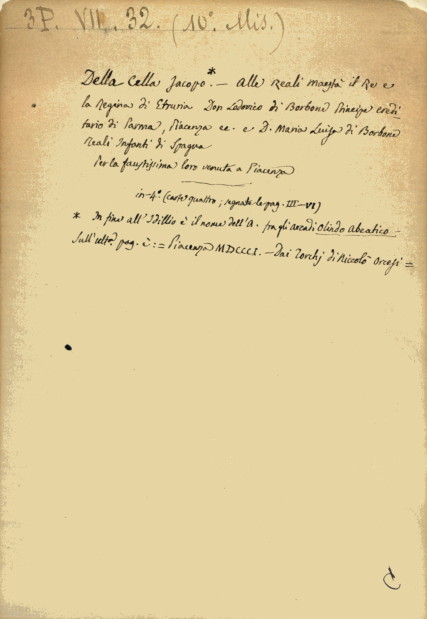 3P. VII. 32. (10°. Mis.)
Della Cella Jacopo* — Alle Reali maestà il Re e
la Regina di Etruria Don Lodovico di Borbone Principe eredi-
tario di Parma, Piacenza ec. e D. Maria Luisa di Borbone
Reali Infanti di Spagna
Per la faustissima loro venuta a Piacenza
in-4° (carte quattro; segnate le pag. III-VI)
* In fine all'Idillio è il nome dell'A. fra gli Arcadi Olindo Abeatico —
Sull'ultᵃ pag. è: = Piacenza MDCCCI. — Dai Torchj di Niccolò Orcesi =